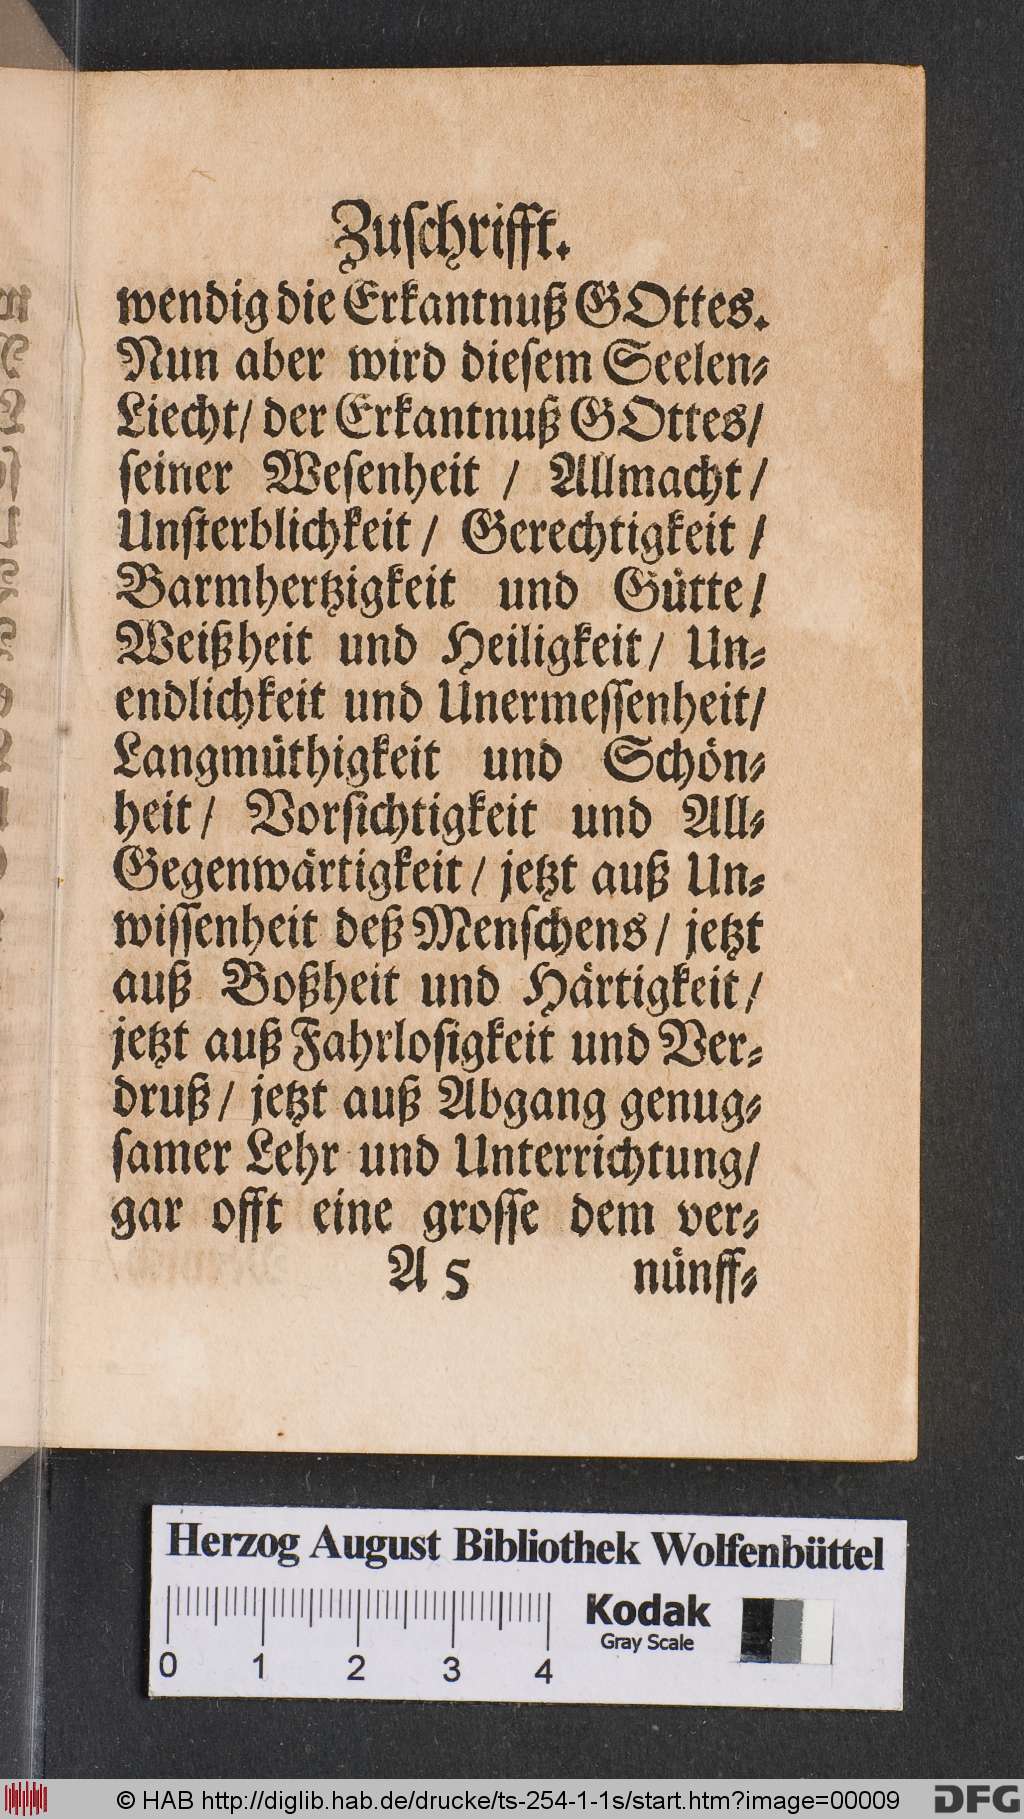 Zuschrifft.
wendig die Erkantnuß GOttes.
Nun aber wird diesem Seelen-
Liecht/ der Erkantnuß GOttes/
seiner Wesenheit / Allmacht/
Unsterblichkeit/ Gerechtigkeit /
Barmhertzigkeit und Gütte/
Weißheit und Heiligkeit/ Un-
endlichkeit und Unermessenheit/
Langmüthigkeit und Schön-
heit/ Vorsichtigkeit und All-
Gegenwärtigkeit/ jetzt auß Un-
wissenheit deß Menschens/ jetzt
auß Boßheit und Härtigkeit/
jetzt auß Fahrlosigkeit und Ver-
druß/ jetzt auß Abgang genug-
samer Lehr und Unterrichtung/
gar offt eine grosse dem ver-
A 5 nünff-
Herzog August Bibliothek Wolfenbüttel
Kodak
Gray Scale
0 1 2 3 4
© HAB http://diglib.hab.de/drucke/ts-254-1-1s/start.htm?image=00009
DFG